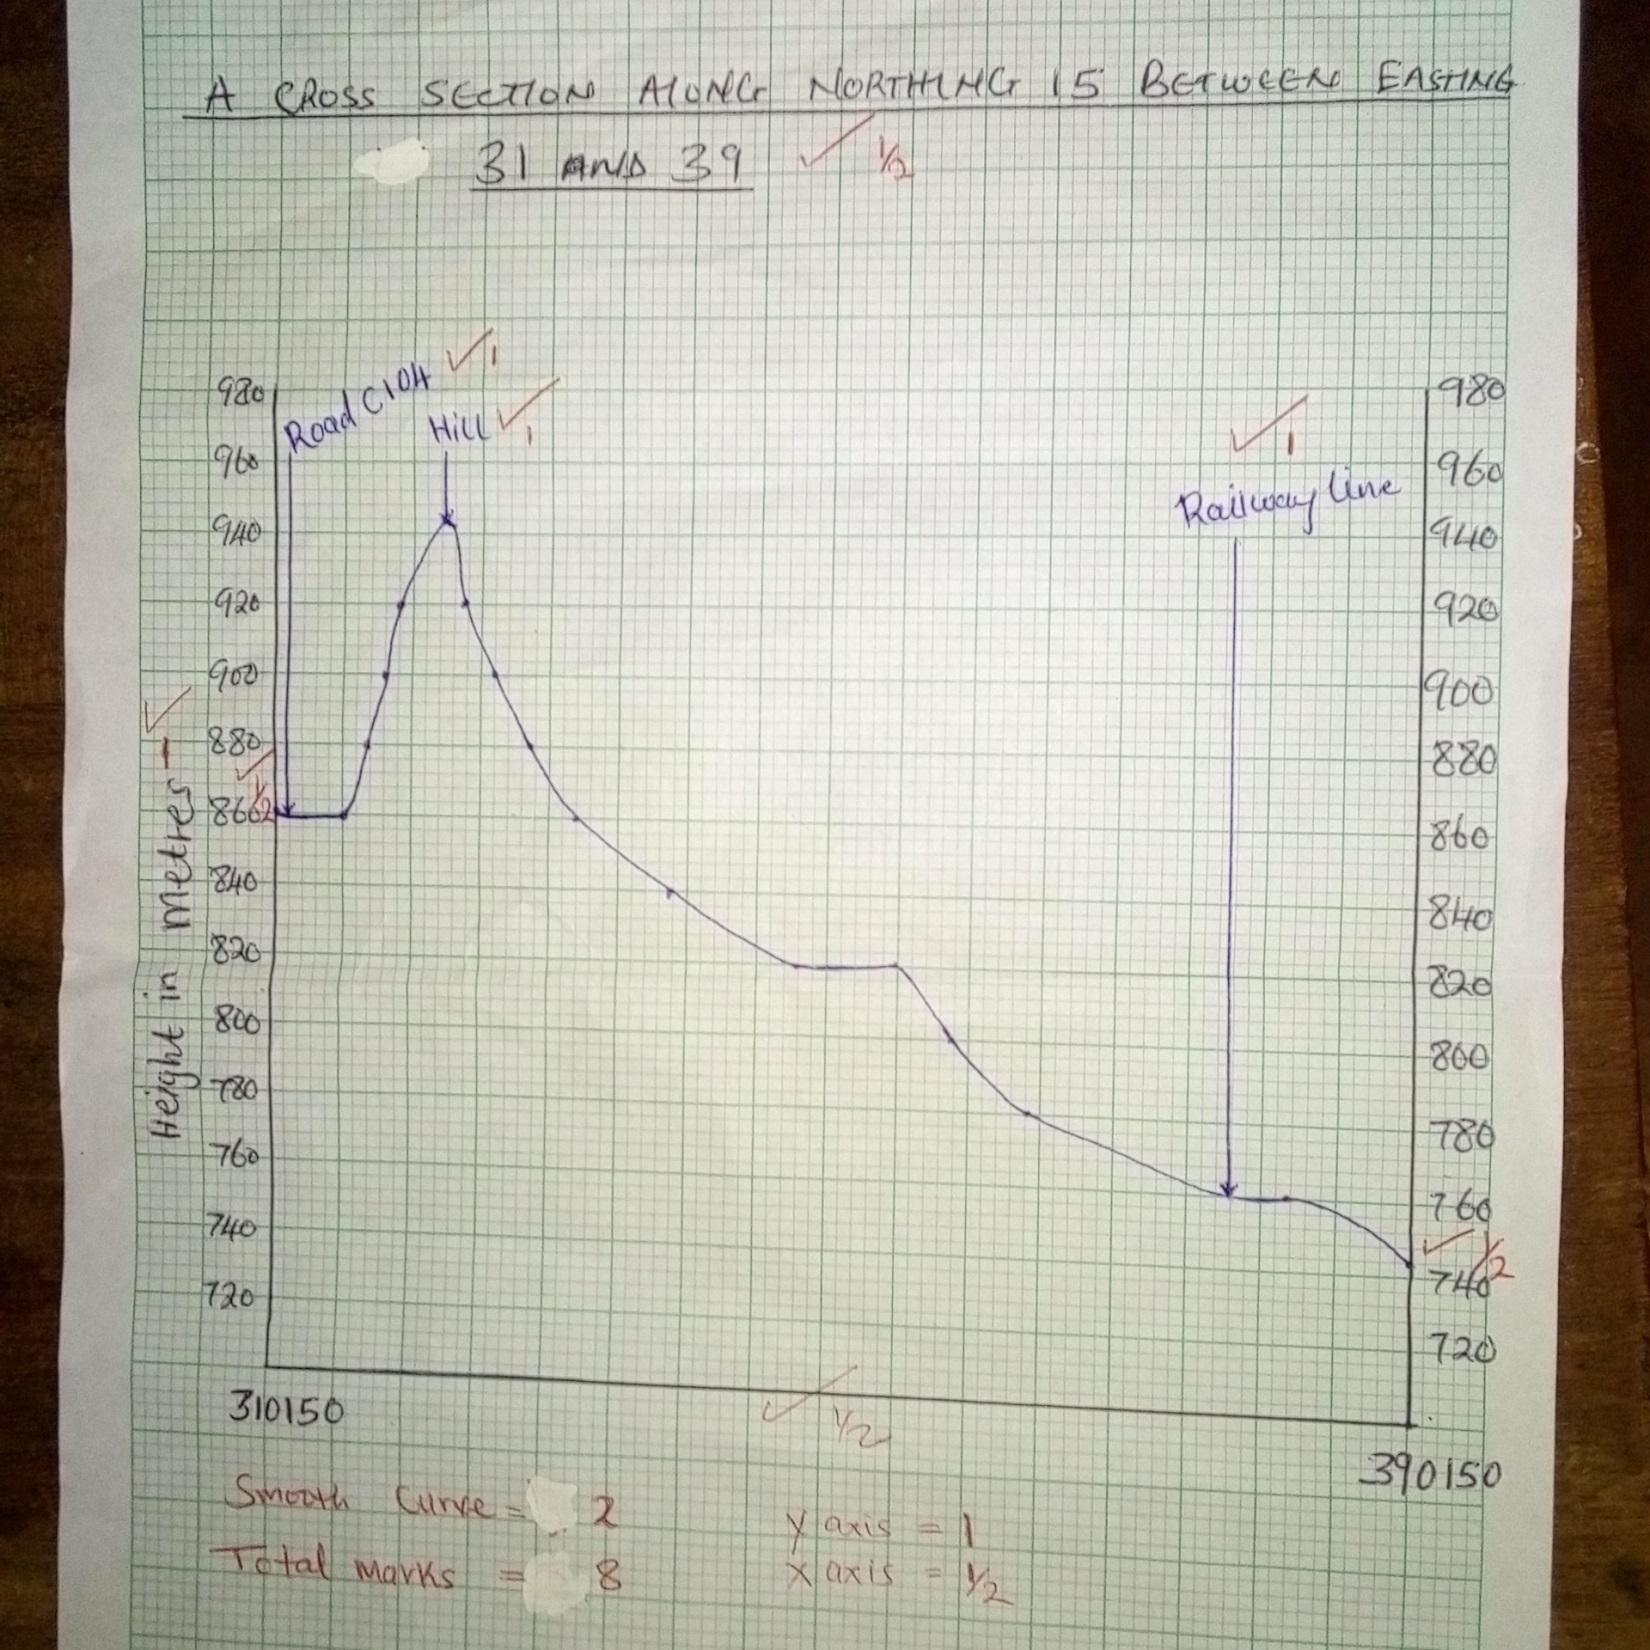 A CROSS SECTION ALONG NORTHING 15 BETWEEN EASTING
31 AND 39 ✓ 1/2
Road C104 ✓ 1
Hill ✓ 1
✓ 1
Railway line
980
960
940
920
900
880
860
840
820
800
780
760
740
720
✓ 1/2
Height in Metres
✓ 1
980
960
940
920
900
880
860
840
820
800
780
760
740
720
✓ 1/2
310150
✓ 1/2
390150
Smooth Curve = 2
Total marks = 8
y axis = 1
x axis = 1/2